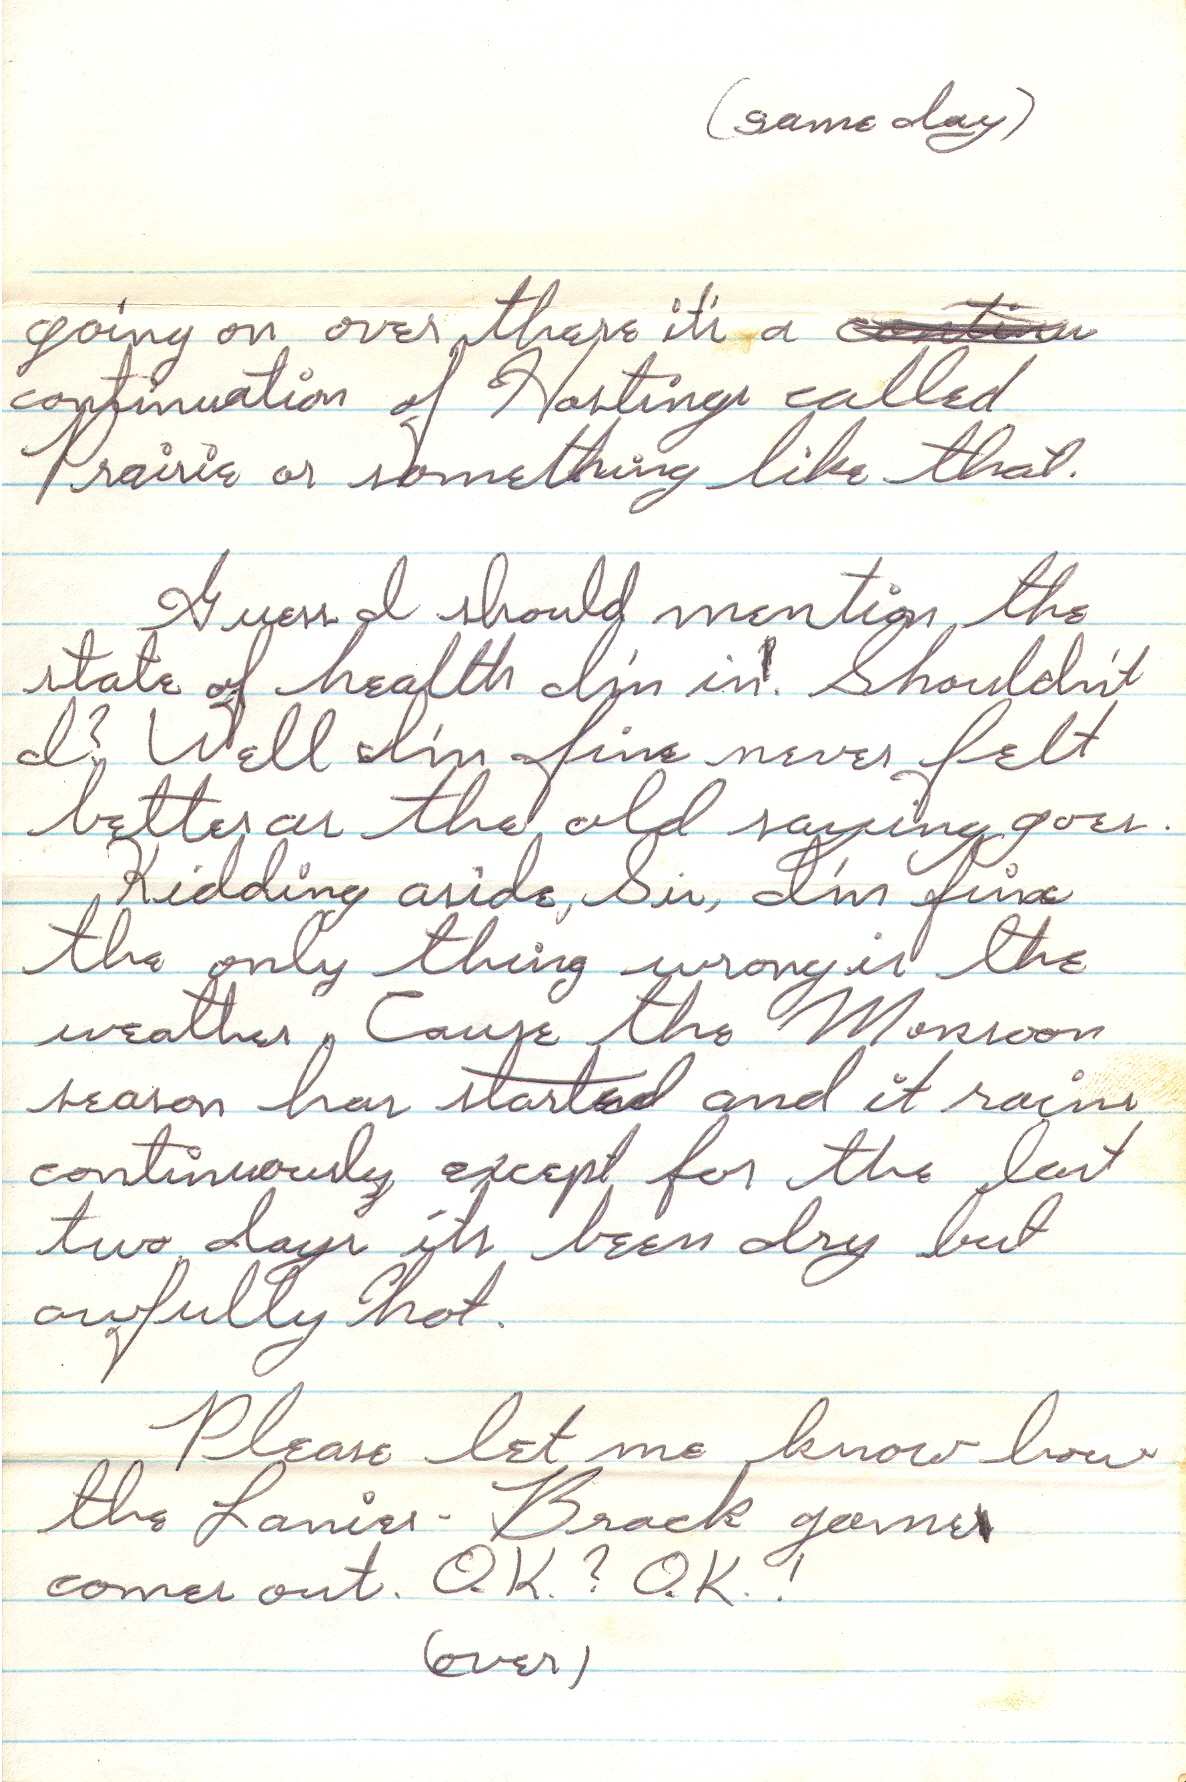 (same day)
going on over there it's a continu
continuation of Hastings called
Prairie or something like that.
Guess I should mention the
state of health I'm in! Shouldn't
I? Well I'm fine never felt
better as the old saying goes.
Kidding aside, Sir, I'm fine
the only thing wrong is the
weather. Cause the Monsoon
season has started and it rains
continuously except for the last
two days it's been dry but
awfully hot.
Please let me know how
the Lanier - Brack game
comes out. O.K.? O.K.!
(over)